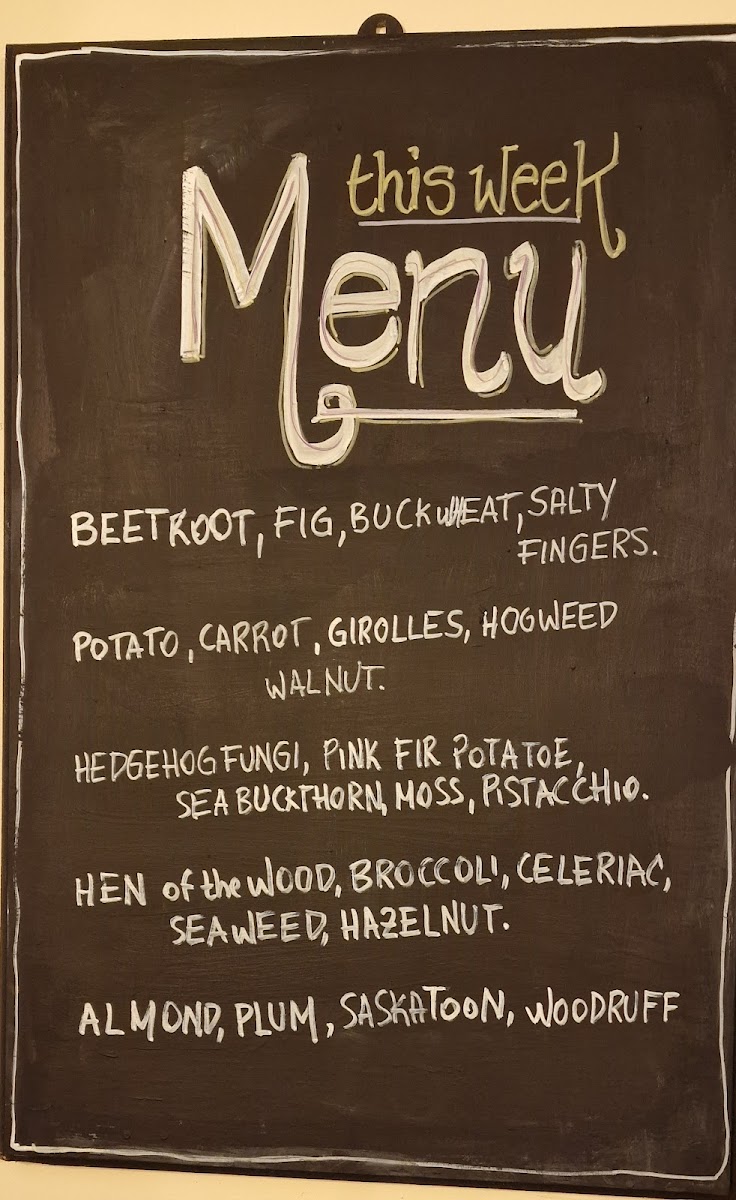 this week
Menu
BEETROOT, FIG, BUCKWHEAT, SALTY
FINGERS.
POTATO, CARROT, GIROLLES, HOGWEED
WALNUT.
HEDGEHOG FUNGI, PINK FIR POTATOE,
SEA BUCKTHORN, MOSS, PISTACCHIO.
HEN of the WOOD, BROCCOLI, CELERIAC,
SEAWEED, HAZELNUT.
ALMOND, PLUM, SASKATOON, WOODRUFF